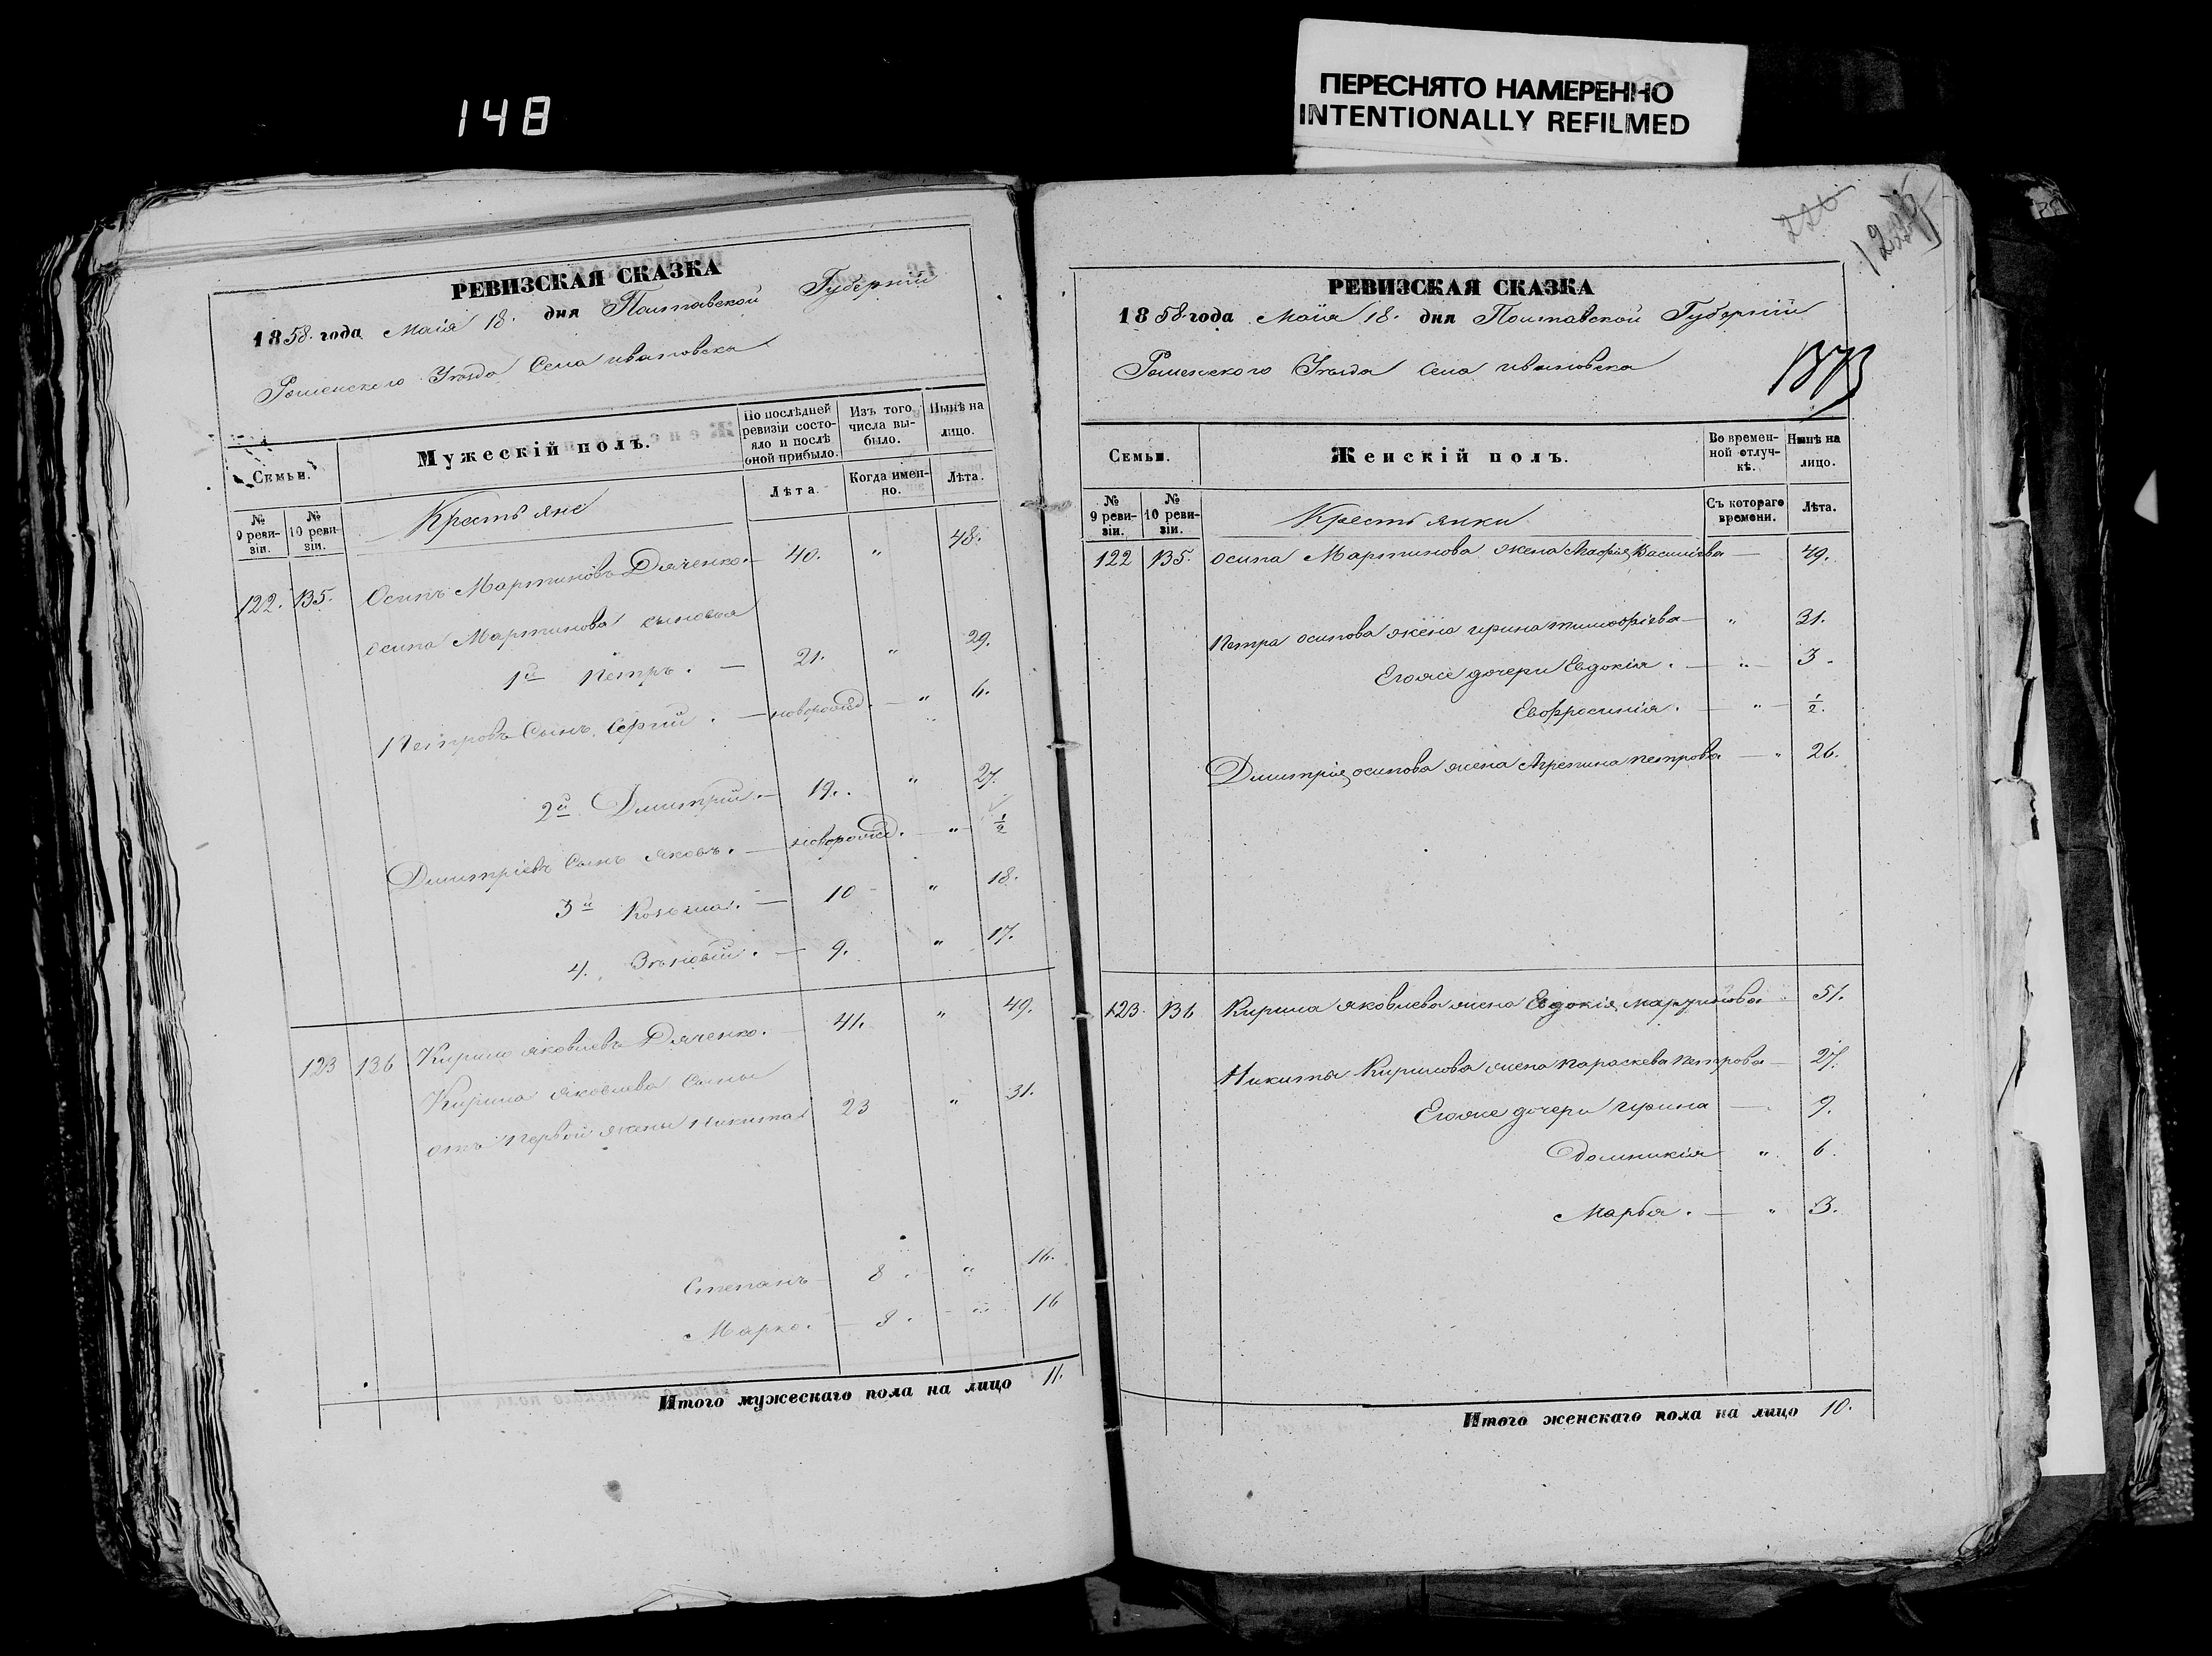 148
ПЕРЕСНЯТО НАМЕРЕННО
INTENTIONALLY REFILMED
РЕВИЗСКАЯ СКАЗКА
1858 года Маія 18. дня Полтавской Губерніи
Роменского Уѣзда Села Ивановска
Семьи.
Мужескій полъ.
По послѣдней ревизіи состояло и послѣ оной прибыло.
Изъ того числа выбыло.
Нынѣ на лицо.
№ 9 ревизіи.
№ 10 ревизіи.
Крестьяне
Лѣта.
Когда именно.
Лѣта.
122. 135. Осипъ Мартиновъ Дяченко. — 40. " 48.
Осипа Мартинова сыновья
1й Петръ. — 21. " 29.
Петровъ Сынъ Сергій. — новорожд. — " 6.
2й Дмитрій. — 19. " 27.
Дмитріевъ Сынъ Яковъ. — новорожд. — " 1/2
3й Козьма. — 10 " 18.
4. Зѣновій. — 9. " 17.
123 136 Кирило Яковлевъ Дяченко. 41. " 49.
Кирила Яковлева Сыны
отъ первой жены Никита 23 " 31.
Степанъ 8. " 16.
Марко. — 8. " 16
Итого мужескаго пола на лицо 11.
226
1373
РЕВИЗСКАЯ СКАЗКА
1858 года Маія 18. дня Полтавской Губерніи
Роменского Уѣзда Села Ивановска
Семьи.
Женскій полъ.
Во временной отлучкѣ.
Нынѣ на лицо.
№ 9 ревизіи.
№ 10 ревизіи.
Крестьянки
Съ котораго времени.
Лѣта.
122 135. Осипа Мартинова жена Васильева — 49.
Петра Осипова жена Ирина Тимофіева — " 31.
Егоже дочери Евдокія. — " — 3.
Евфросинія. — " — 1/2.
Дмитрія Осипова жена Агрепина Петрова — " 26.
123. 136 Кирила Яковлева жена Евдокія Мартинова 51.
Никиты Кирилова жена Параскева Петрова — 27.
Егоже дочери Ирина — 9.
Домникія " 6.
Марья. — " 3.
Итого женскаго пола на лицо 10.